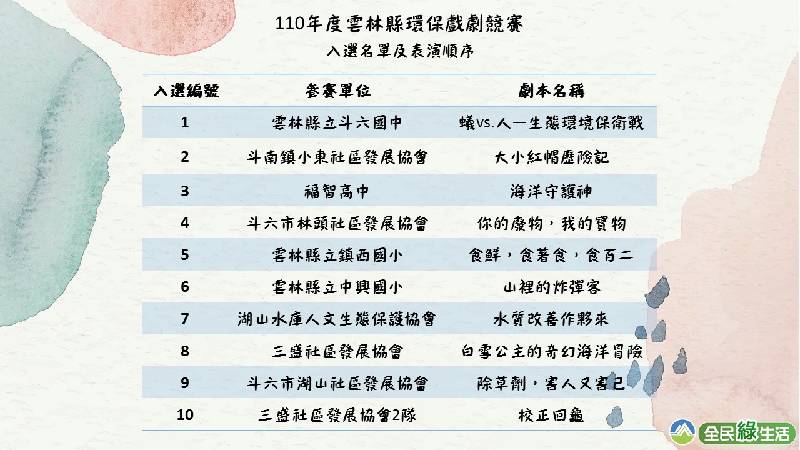 110年度雲林縣環保戲劇競賽
入選名單及表演順序
入選編號 參賽單位 劇本名稱
1 雲林縣立斗六國中 蟻vs.人—生態環境保衛戰
2 斗南鎮小東社區發展協會 大小紅帽歷險記
3 福智高中 海洋守護神
4 斗六市林頭社區發展協會 你的廢物，我的寶物
5 雲林縣立鎮西國小 食鮮，食著食，食百二
6 雲林縣立中興國小 山裡的炸彈客
7 湖山水庫人文生態保護協會 水質改善作夥來
8 三盛社區發展協會 白雪公主的奇幻海洋冒險
9 斗六市湖山社區發展協會 除草劑，害人又害己
10 三盛社區發展協會2隊 校正回龜
全民綠生活